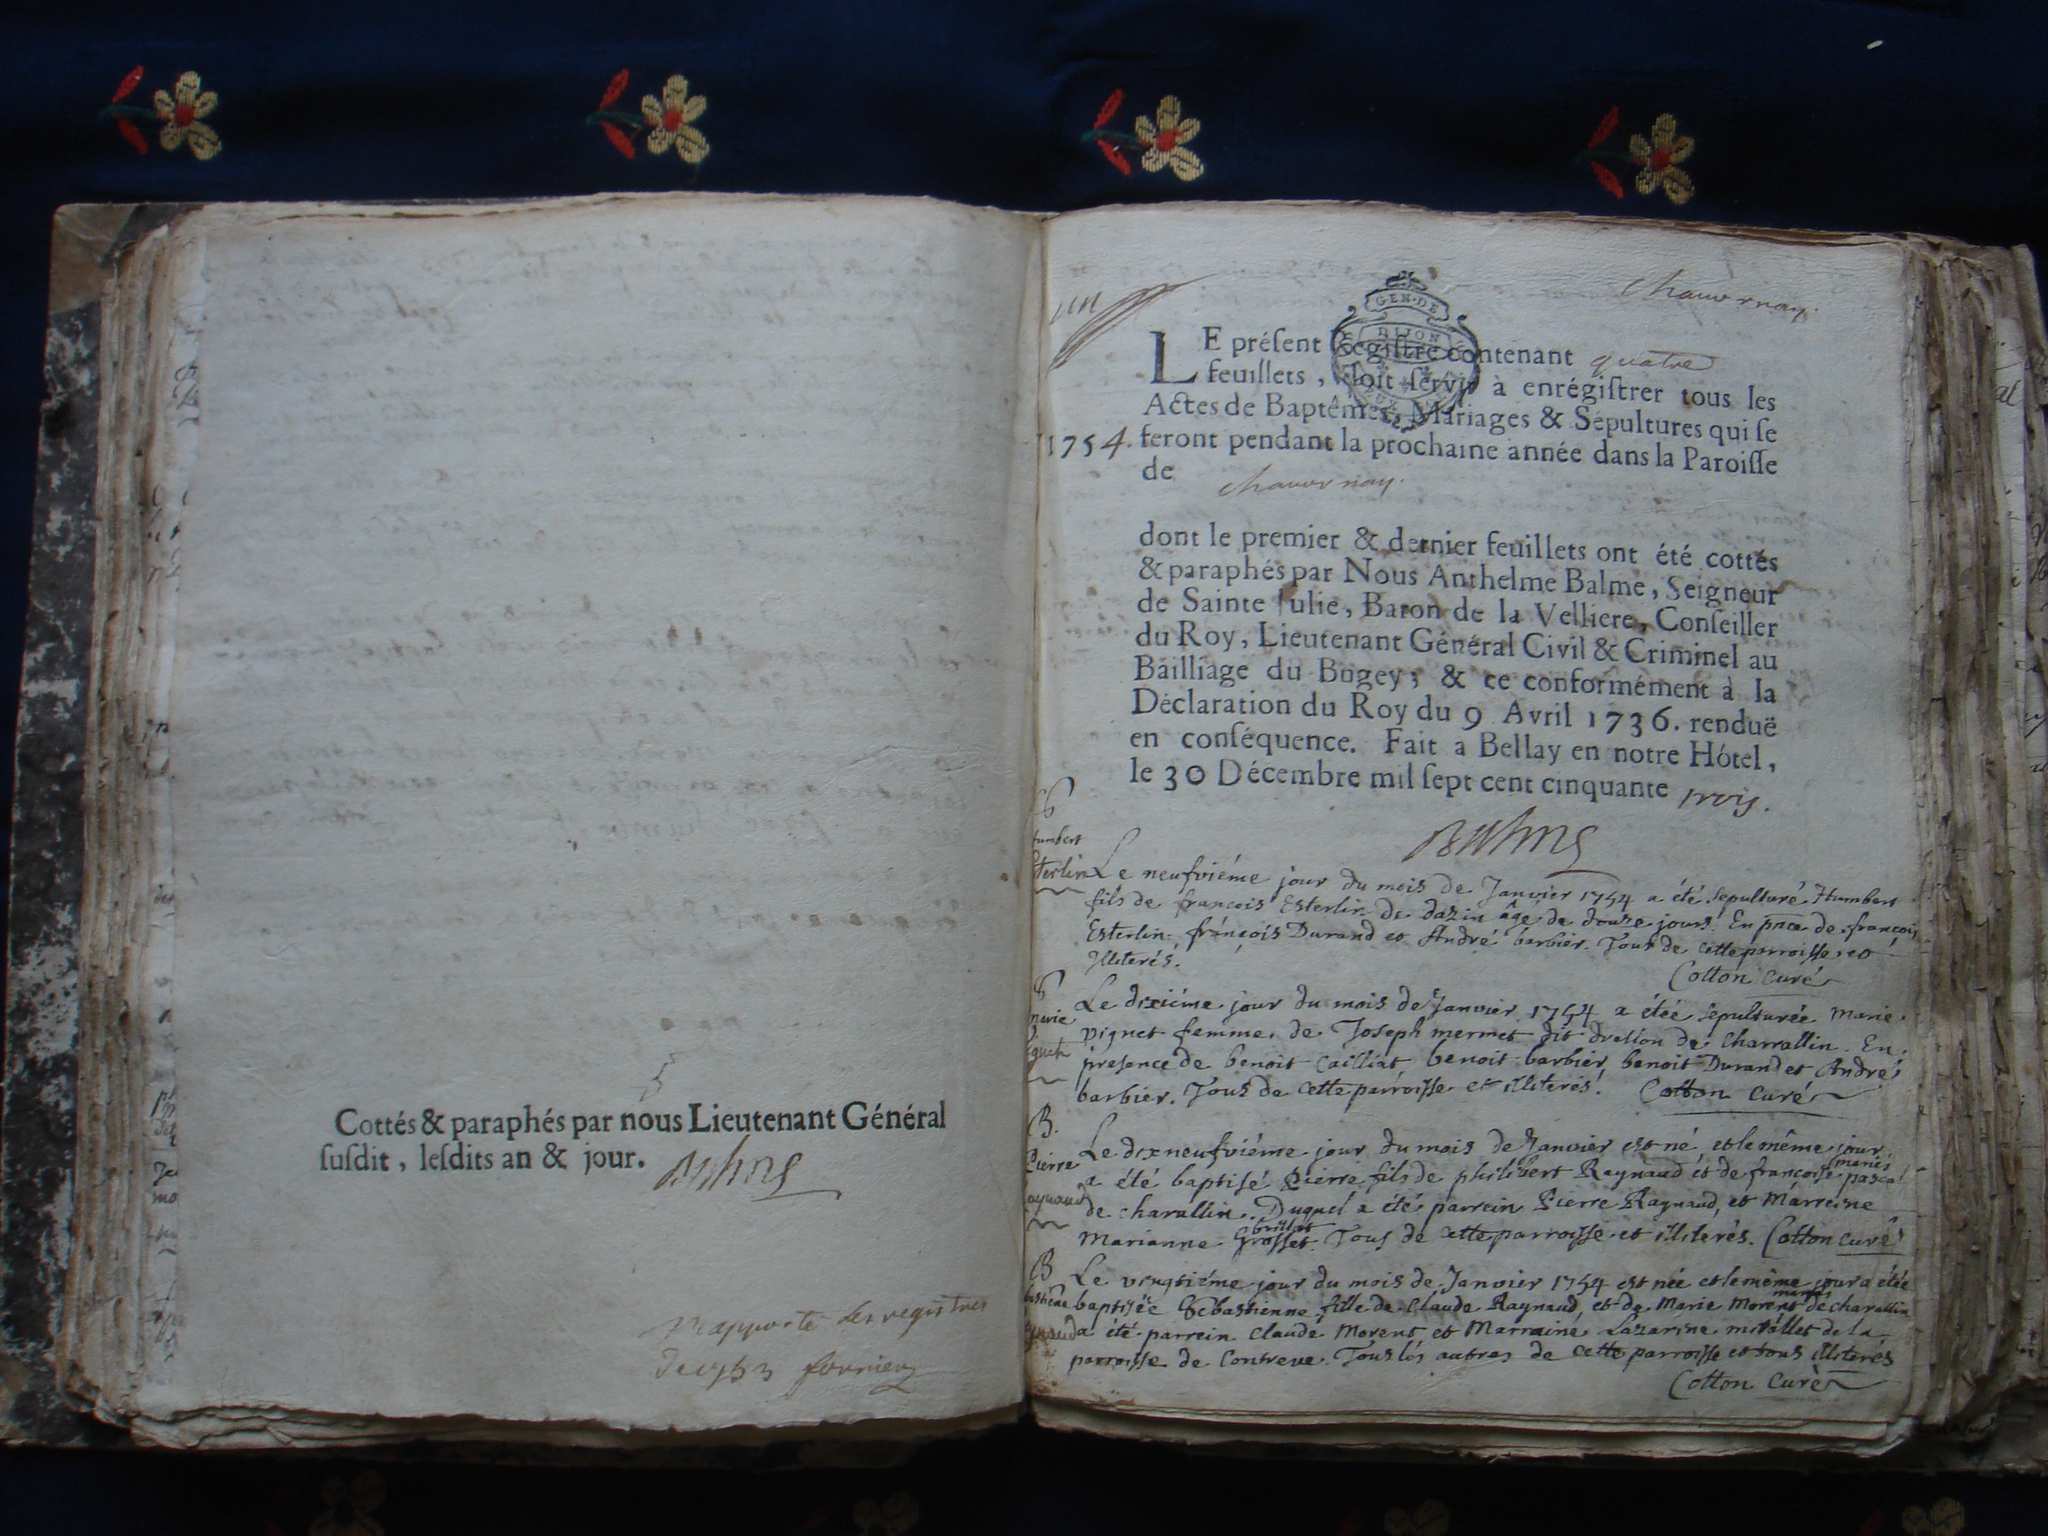 Cottés & paraphés par nous Lieutenant Général
ſuſdit, leſdits an & jour.
des registres
GEN·DE
DIJON
LE préſent Regiſtre contenant quatre
feuillets, doit ſervir à enrégiſtrer tous les
Actes de Baptêmes, Mariages & Sépultures qui ſe
1754. feront pendant la prochaine année dans la Paroiſſe
de
dont le premier & dernier feuillets ont été cottés
& paraphés par Nous Anthelme Balme, Seigneur
de Sainte Julie, Baron de la Velliere, Conſeiller
du Roy, Lieutenant Général Civil & Criminel au
Bailliage du Bugey; & ce conformément à la
Déclaration du Roy du 9 Avril 1736. renduë
en conſéquence. Fait a Bellay en notre Hótel,
le 30 Décembre mil ſept cent cinquante trois.
Le neufviéme jour du mois de Janvier 1754 a été sepulturé Humbert
fils de francois Esterlin de dazin âge de douze jours. En de francois
Esterlin françois Durand et André barbier. Tous de cette parroisse et
Illiterés.
Cotton Curé
Le dixiéme jour du mois de Janvier 1754 a étée sepulturée Marie
vignet femme de Joseph mermet dit de Charrallin. En
presence de benoit Cailliat benoit barbier, benoit Durand et André
barbier. Tous de cette parroisse et illiterés. Cotton Curé
B.
Pierre
Le dixneufviéme jour du mois de Janvier est né et le même jour
a été baptisé Pierre fils de philibert Raynaud et de francoise pascal
mariés
de charallin. Duquel a été parrein Pierre Raynaud, et Marreine
Marianne Grosset. Tous de cette parroisse et illiterés. Cotton curé
B
Le vingtiéme jour du mois de Janvier 1754 est née et le même jour a étée
baptisée Sebastienne fille de Claude Raynaud, et de Marie Morent de charallin
mariés
a été parrein Claude Morent et Marraine Lazarine de la
parroisse de Contreve. Tous les autres de cette parroisse et tous illiteres
Cotton Curé